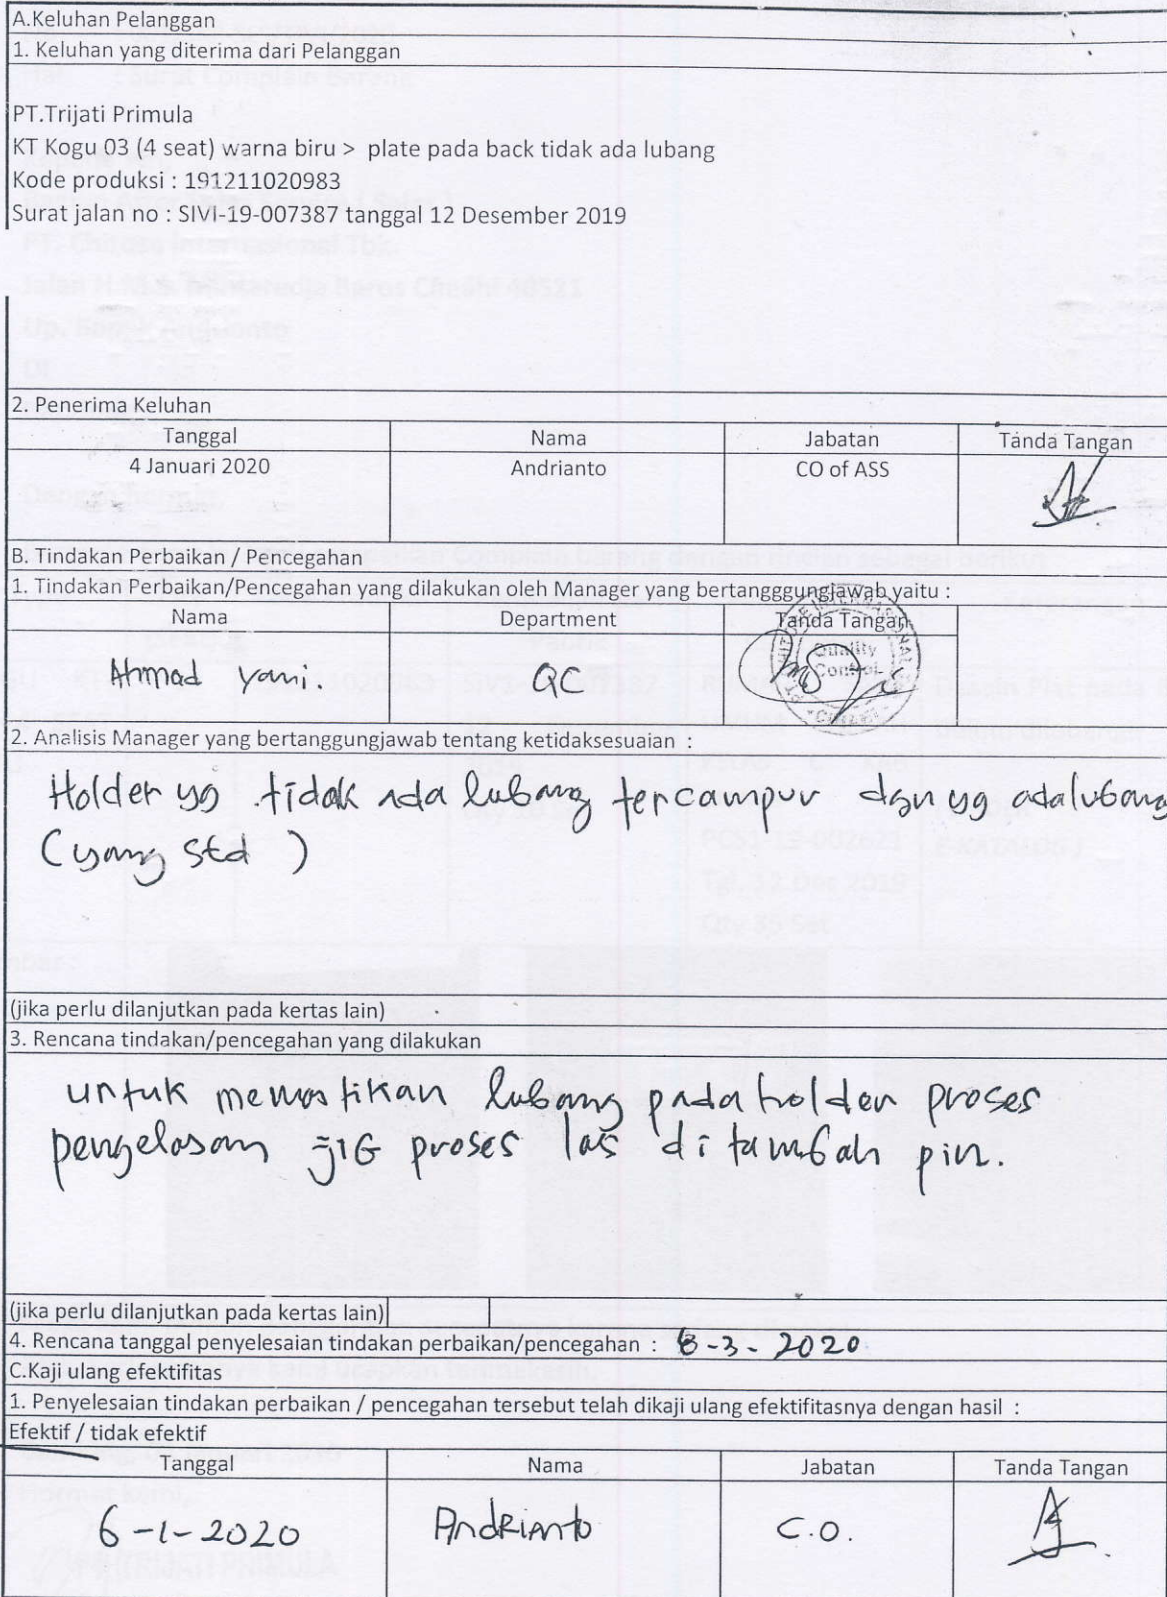 A.Keluhan Pelanggan
1. Keluhan yang diterima dari Pelanggan
PT.Trijati Primula
KT Kogu 03 (4 seat) warna biru > plate pada back tidak ada lubang
Kode produksi : 191211020983
Surat jalan no : SIVI-19-007387 tanggal 12 Desember 2019
2. Penerima Keluhan
Tanggal Nama Jabatan Tanda Tangan
4 Januari 2020 Andrianto CO of ASS
B. Tindakan Perbaikan / Pencegahan
1. Tindakan Perbaikan/Pencegahan yang dilakukan oleh Manager yang bertangggungjawab yaitu :
Nama Department Tanda Tangan
Ahmad Yani. QC
Quality
Control
2. Analisis Manager yang bertanggungjawab tentang ketidaksesuaian :
Holder yg tidak ada lubang tercampur dgn yg ada lubang
(yang std )
(jika perlu dilanjutkan pada kertas lain)
3. Rencana tindakan/pencegahan yang dilakukan
untuk memastikan lubang pada holder proses
pengelasan JIG proses las ditambah pin.
(jika perlu dilanjutkan pada kertas lain)
4. Rencana tanggal penyelesaian tindakan perbaikan/pencegahan : 8-3-2020
C.Kaji ulang efektifitas
1. Penyelesaian tindakan perbaikan / pencegahan tersebut telah dikaji ulang efektifitasnya dengan hasil :
Efektif / tidak efektif
Tanggal Nama Jabatan Tanda Tangan
6-1-2020 Andrianto C.O.